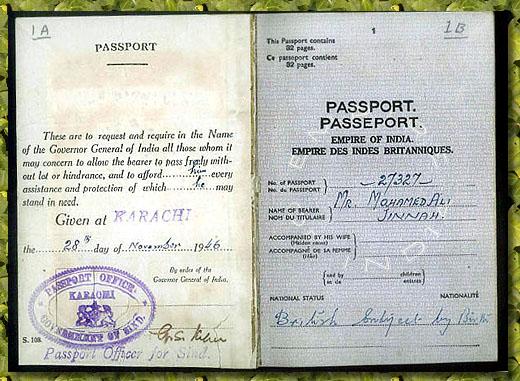 1A
PASSPORT
These are to request and require in the Name
of the Governor General of India all those whom it
may concern to allow the bearer to pass freely with-
out lot or hindrance, and to afford him every
assistance and protection of which he may
stand in need.
Given at KARACHI
the 28th day of November 1946
By order of the
Governor General of India.
PASSPORT OFFICE
KARACHI
GOVERNMENT OF SIND.
S. 108.
Passport Officer for Sind.
1
1B
This Passport contains
32 pages.
Ce passeport contient
32 pages.
PASSPORT.
PASSEPORT.
EMPIRE OF INDIA.
EMPIRE DES INDES BRITANNIQUES.
No. of PASSPORT
No. du PASSEPORT
27327
NAME OF BEARER
NOM DU TITULAIRE
MR. MAHAMED ALI
JINNAH.
ACCOMPANIED BY HIS WIFE
(Maiden name)
ACCOMPAGNÉ DE SA FEMME
(Née)
and by
et de
children
enfants
NATIONAL STATUS
NATIONALITÉ
British Subject by Birth